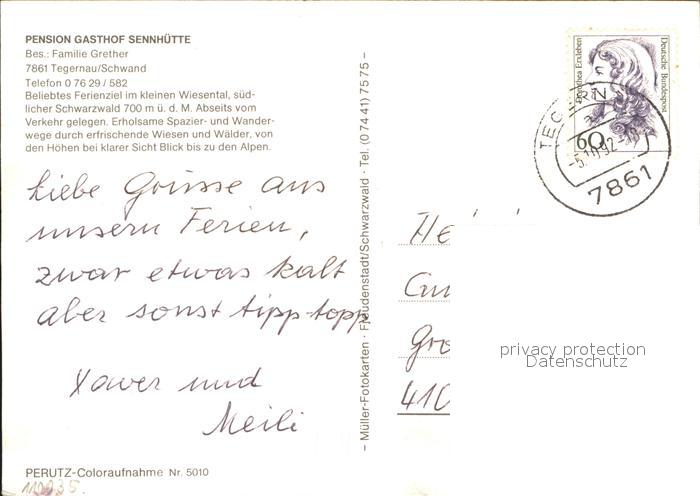 PENSION GASTHOF SENNHÜTTE
Bes.: Familie Grether
7861 Tegernau/Schwand
Telefon 0 76 29 / 582
Beliebtes Ferienziel im kleinen Wiesental, süd-
licher Schwarzwald 700 m ü. d. M. Abseits vom
Verkehr gelegen. Erholsame Spazier- und Wander-
wege durch erfrischende Wiesen und Wälder, von
den Höhen bei klarer Sicht Blick bis zu den Alpen.
Liebe Grüsse aus
unsern Ferien,
zwar etwas kalt
aber sonst tipp-topp
Xaver und
Meili
PERUTZ-Coloraufnahme Nr. 5010
– Müller-Fotokarten · Freudenstadt/Schwarzwald · Tel. (0 74 41) 75 75 –
Dorothea Erxleben
Deutsche Bundespost
60
7861
He
Gro
410
privacy protection
Datenschutz